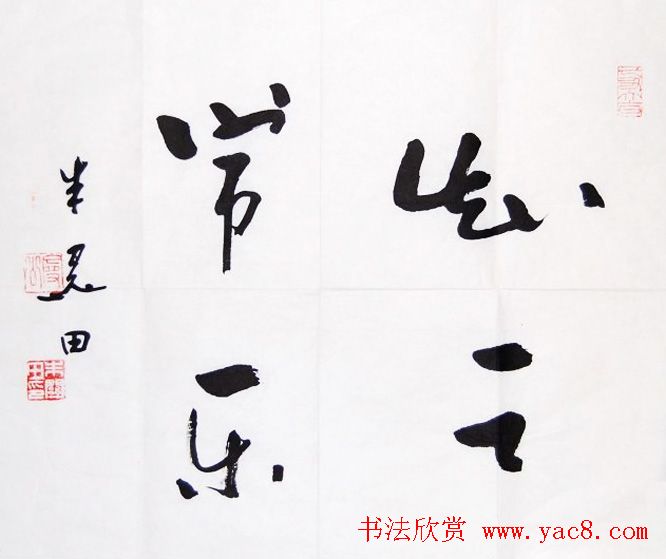 知足
常乐
朱田
书法欣赏 www.yac8.com